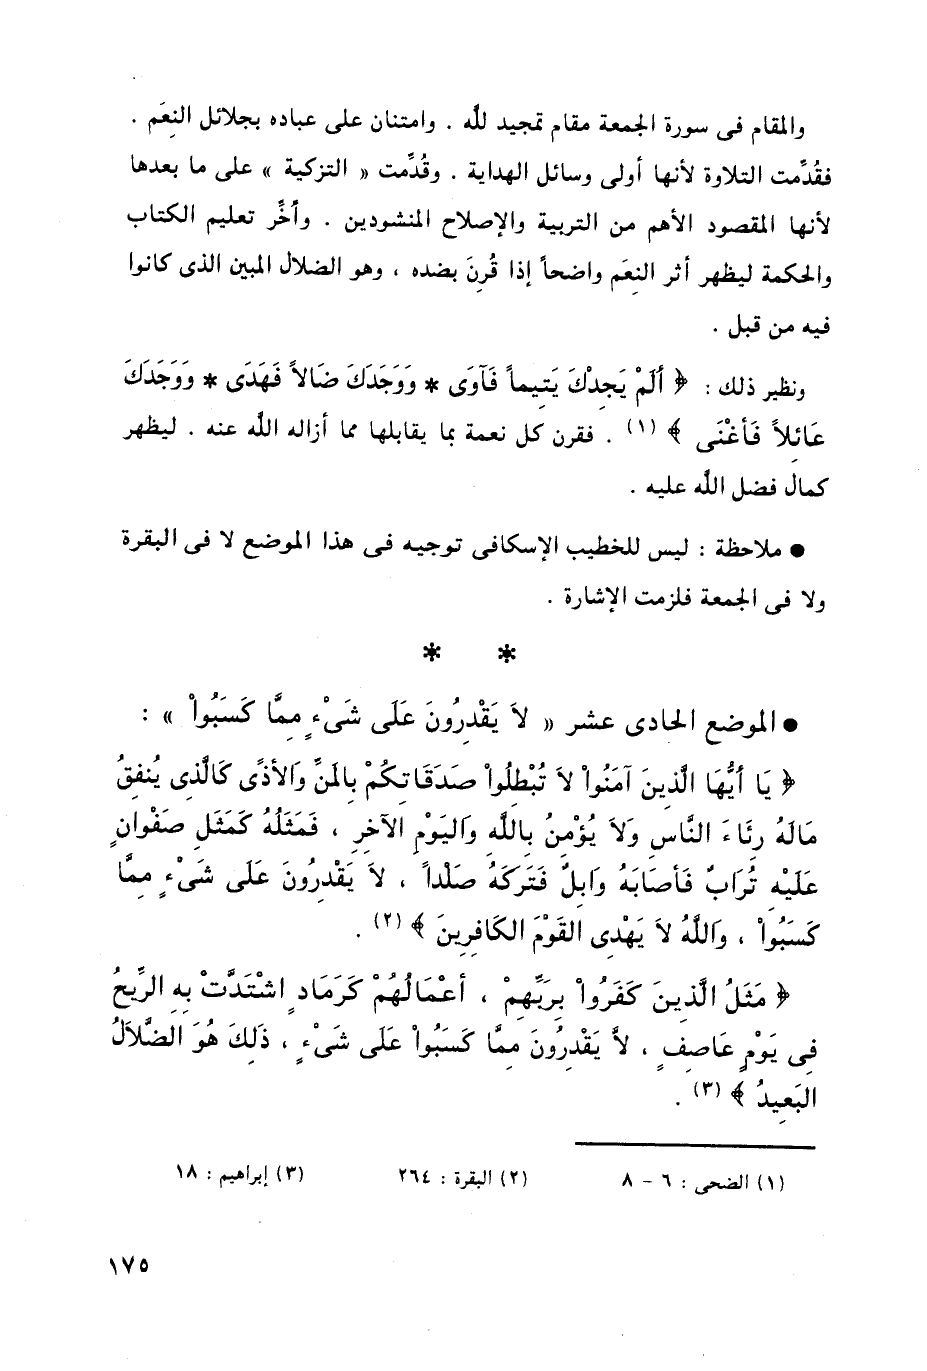 والمقام فى سورة الجمعة مقام تمجيد لله . وامتنان على عباده بجلائل النعَم .
فقُدِّمت التلاوة لأنها أولى وسائل الهداية . وقُدِّمت « التزكية » على ما بعدها
لأنها المقصود الأهم من التربية والإصلاح المنشودين . وأُخِّر تعليم الكتاب
والحكمة ليظهر أثر النعَم واضحاً إذا قُرِنَ بضده ، وهو الضلال المبين الذى كانوا
فيه من قبل .
ونظير ذلك : ﴿ أَلَمْ يَجِدْكَ يَتِيماً فَآوَى * وَوَجَدَكَ ضَالاً فَهَدَى * وَوَجَدَكَ
عَائِلاً فَأَغْنَى ﴾ (١) . فقرن كل نعمة بما يقابلها مما أزاله الله عنه . ليظهر
كمال فضل الله عليه .
● ملاحظة : ليس للخطيب الإسكافى توجيه فى هذا الموضع لا فى البقرة
ولا فى الجمعة فلزمت الإشارة .
* *
● الموضع الحادى عشر « لاَ يَقْدِرُونَ عَلَى شَىْءٍ مِمَّا كَسَبُواْ » :
﴿ يَا أَيُّهَا الَّذِينَ آمَنُواْ لاَ تُبْطِلُواْ صَدَقَاتِكُمْ بِالمَنِّ وَالأَذَى كَالَّذِى يُنفِقُ
مَالَهُ رِئَاءَ النَّاسِ وَلاَ يُؤْمِنُ بِاللَّهِ وَاليَوْمِ الآخِرِ ، فَمَثَلُهُ كَمَثَلِ صَفْوَانٍ
عَلَيْهِ تُرَابٌ فَأَصَابَهُ وَابِلٌ فَتَرَكَهُ صَلْداً ، لاَ يَقْدِرُونَ عَلَى شَىْءٍ مِمَّا
كَسَبُواْ ، وَاللَّهُ لاَ يَهْدِى القَوْمَ الكَافِرِينَ ﴾ (٢) .
﴿ مَثَلُ الَّذِينَ كَفَرُواْ بِرَبِّهِمْ ، أَعْمَالُهُمْ كَرَمَادٍ اشْتَدَّتْ بِهِ الرِّيحُ
فِى يَوْمٍ عَاصِفٍ ، لاَّ يَقْدِرُونَ مِمَّا كَسَبُواْ عَلَى شَىْءٍ ، ذَلِكَ هُوَ الضَّلاَلُ
البَعِيدُ ﴾ (٣) .
(١) الضحى : ٦ – ٨ (٢) البقرة : ٢٦٤ (٣) إبراهيم : ١٨
١٧٥